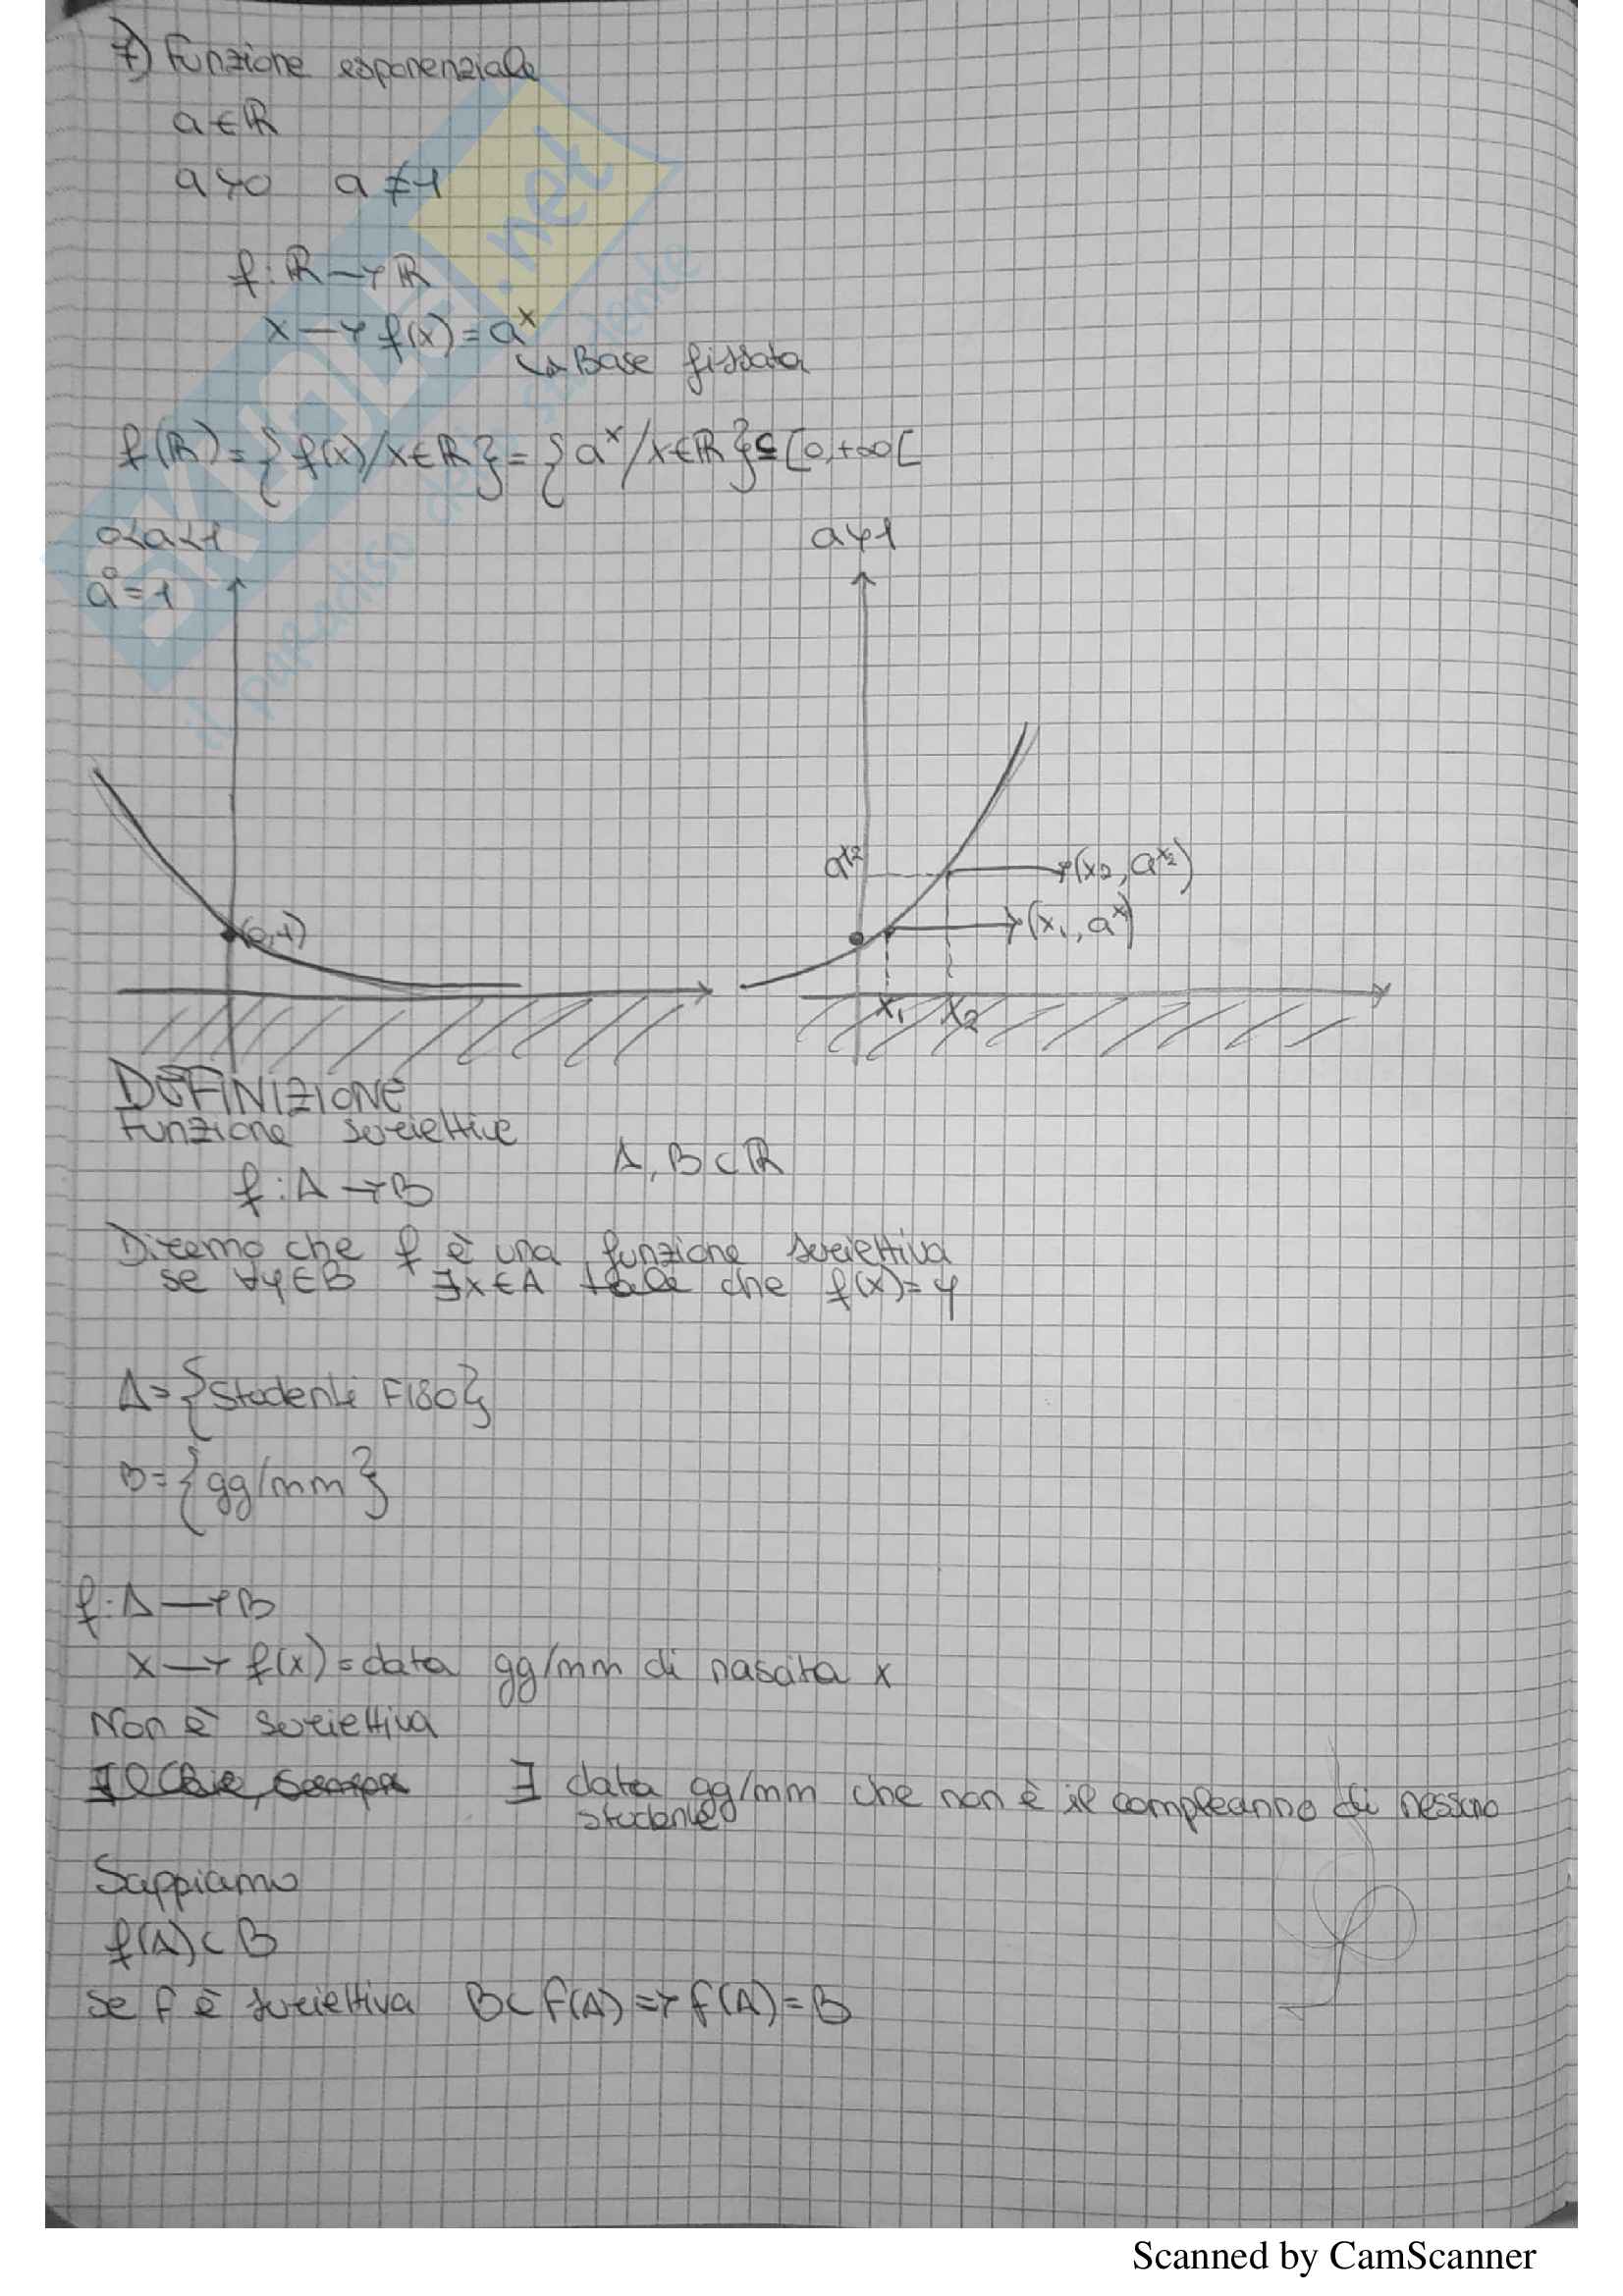 7) Funzione esponenziale
a ∈ ℝ
a > 0   a ≠ 1
f: ℝ → ℝ
x → f(x) = aˣ
↳ Base fissata
f(ℝ) = {f(x)/x∈ℝ} = {aˣ/x∈ℝ} ⊆ [0,+∞[
0<a<1   a>1
a⁰=1
aˣ²   (x₂, aˣ²)
(0,1)   (x₁, aˣ)
x₁   x₂
DEFINIZIONE
Funzione suriettive
A, B ⊂ ℝ
f: A → B
Diremo che f è una funzione suriettiva
se ∀y∈B   ∃x∈A tale che f(x)=y
A = {Studenti F180}
B = {gg/mm}
f: A → B
x → f(x) = data gg/mm di nascita x
Non è suriettiva
∃ data gg/mm che non è il compleanno di nessuno
studente
Sappiamo
f(A) ⊂ B
se f è suriettiva   B ⊂ f(A) => f(A) = B
SKUOLA.net
il paradiso dello studente
Scanned by CamScanner